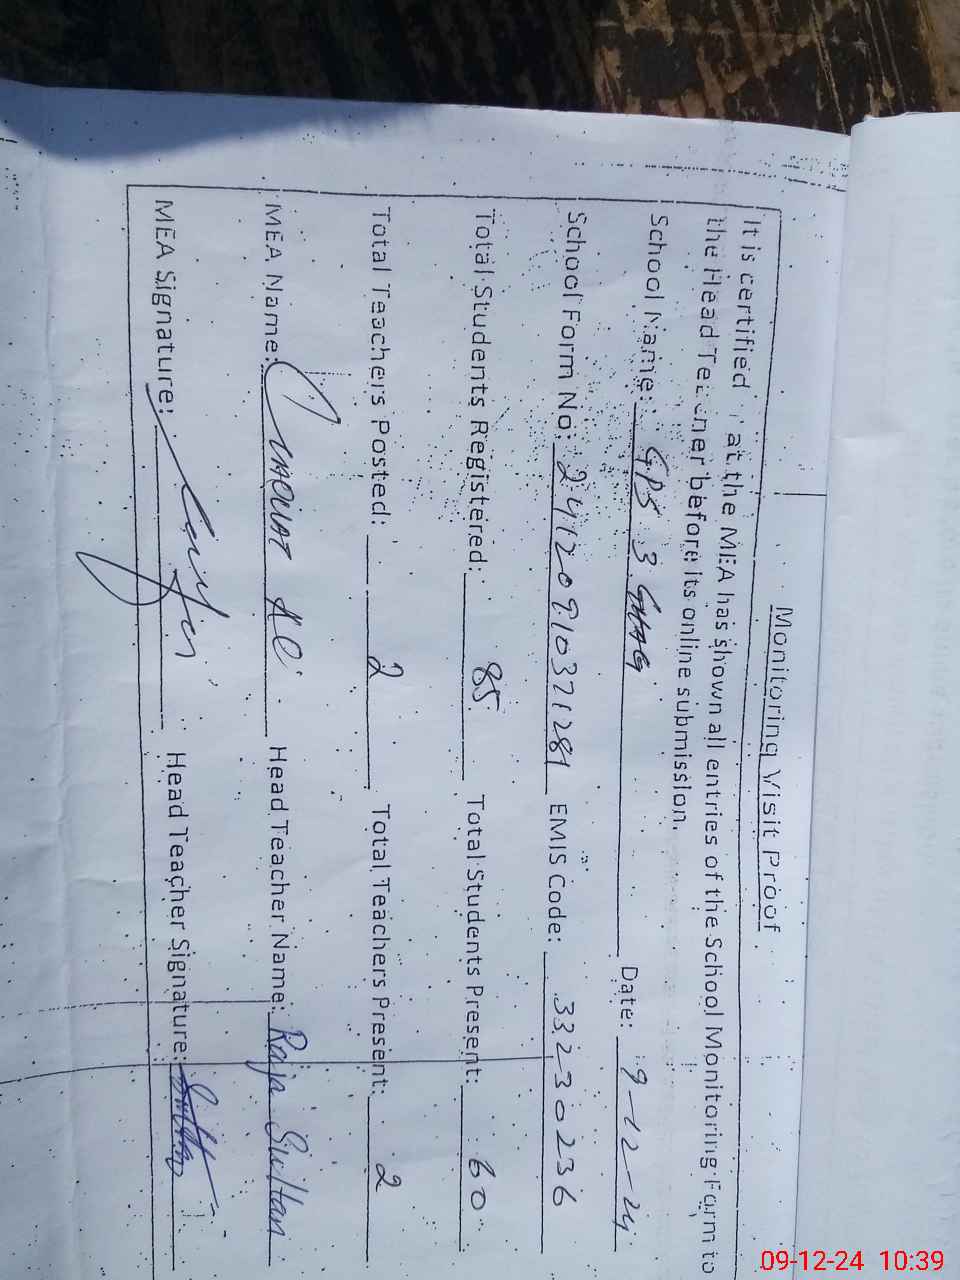 Monitoring Visit Proof
It is certified that the MEA has shown all entries of the School Monitoring Form to
the Head Teacher before its online submission.
School Name: GPS 3 GHAG Date: 9-12-24
School Form No: 24120910371281 EMIS Code: 33230236
Total Students Registered: 85 Total Students Present: 60
Total Teachers Posted: 2 Total Teachers Present: 2
MEA Name: LIAQUAT ALI Head Teacher Name: Raja Sultan
MEA Signature: Head Teacher Signature:
09-12-24 10:39